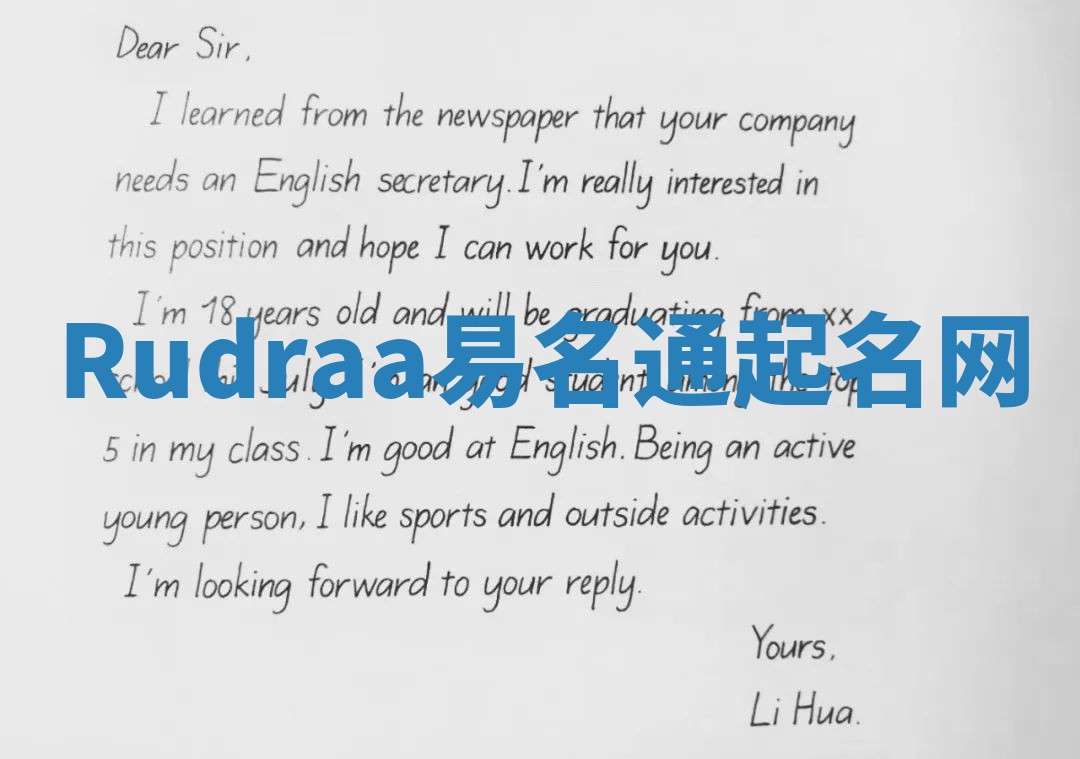 Dear Sir,
I learned from the newspaper that your company
needs an English secretary. I'm really interested in
this position and hope I can work for you.
I'm 18 years old and will be graduating from xx
Rudraa易名通起名网
July I'm good student among the top
5 in my class. I'm good at English. Being an active
young person, I like sports and outside activities.
I'm looking forward to your reply.
Yours,
Li Hua.